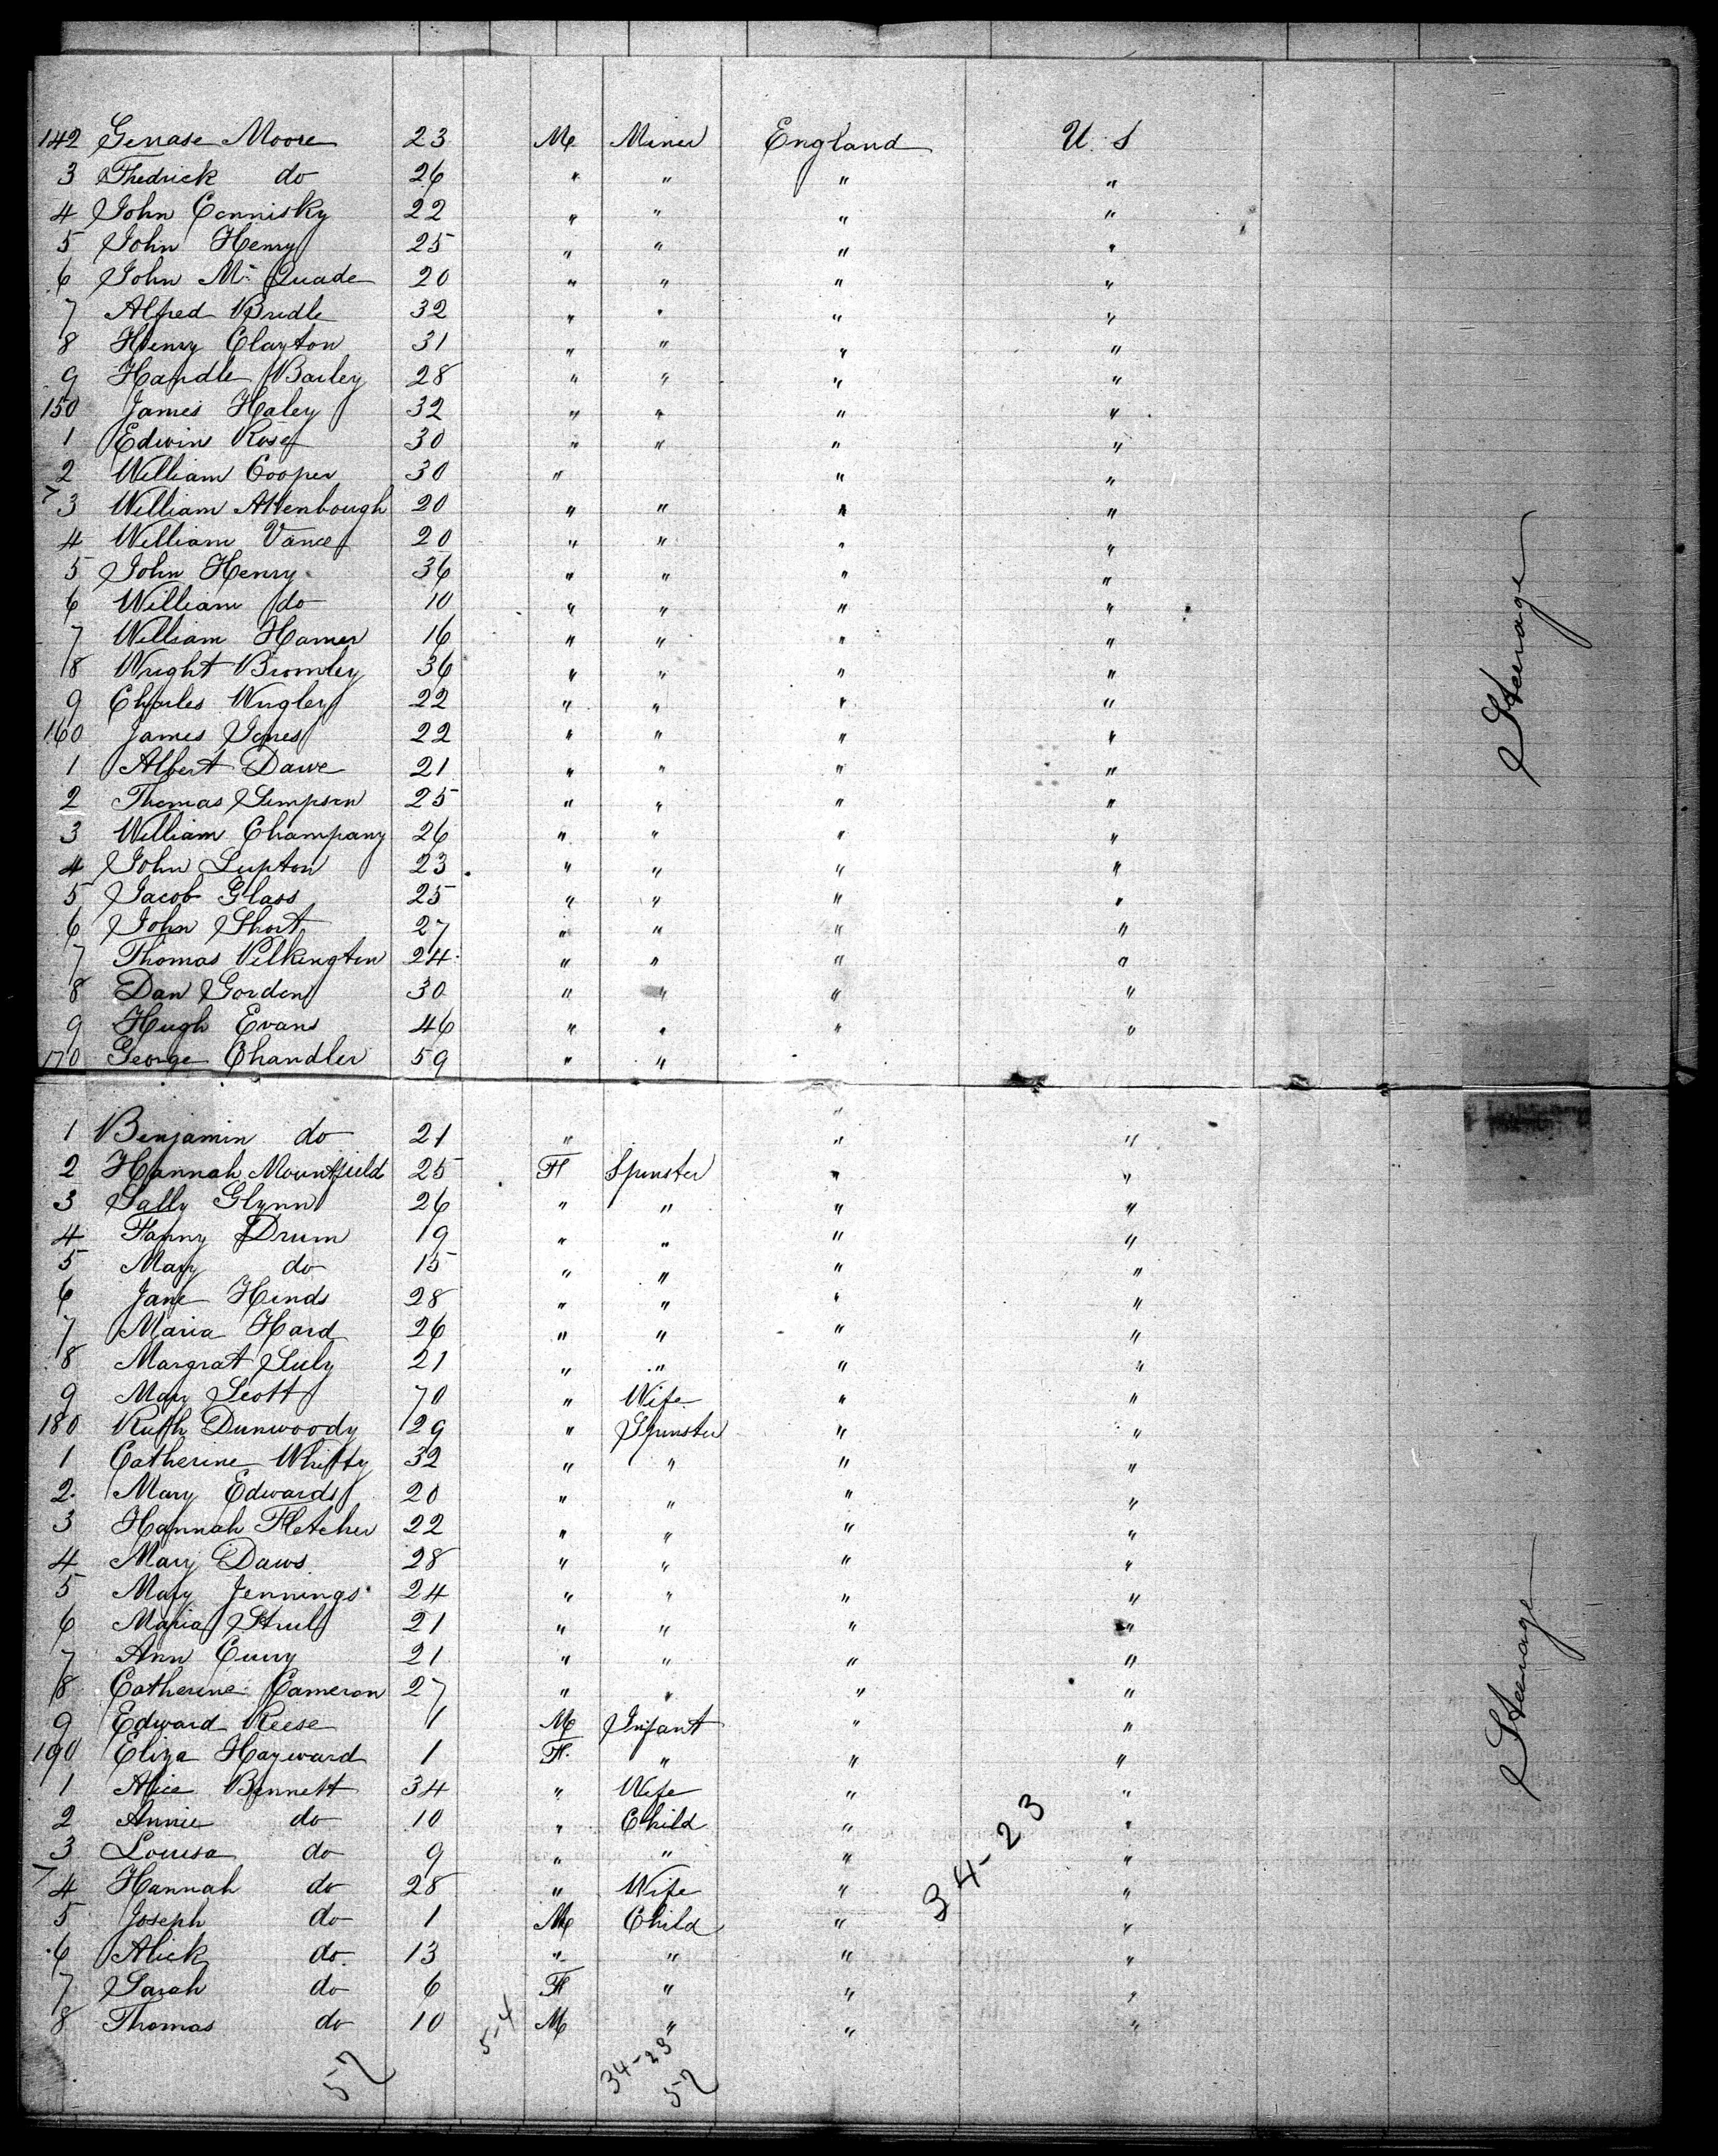 142 Gerrase Moore 23 M Miner England U. S
3 Fhedrick do 26 " " " "
4 John Connisky 22 " " " "
5 John Henry 25 " " " "
6 John Mc Quade 20 " " " "
7 Alfred Bridle 32 " " " "
8 Henry Clayton 31 " " " "
9 Handle Bailey 28 " " " "
150 James Haley 32 " " " "
1 Edwin Rose 30 " " " "
2 William Cooper 30 " " "
3 William Attenbough 20 " " " "
4 William Vance 20 " " " "
5 John Henry 36 " " " "
6 William do 10 " " " "
7 William Hamer 16 " " " "
8 Wright Bromley 36 " " " "
9 Charles Wrigley 22 " " " "
160 James Jones 22 " " " "
1 Albert Dawe 21 " " " "
2 Thomas Simpson 25 " " " "
3 William Champany 26 " " " "
4 John Lupton 23 " " " "
5 Jacob Glass 25 " " " "
6 John Short 27 " " " "
7 Thomas Pilkington 24 " " " "
8 Dan Gorden 30 " " " "
9 Hugh Evans 46 " " " "
170 George Chandler 59 " "
Steerage
1 Benjamin do 21 " " "
2 Hannah Mountfield 25 F Spinster " "
3 Sally Glynn 26 " " " "
4 Fanny Drum 19 " " " "
5 Mary do 15 " " " "
6 Jane Hinds 28 " " " "
7 Maria Hard 26 " " " "
8 Margrat Suly 21 " " " "
9 Mary Scott 70 " Wife " "
180 Ruth Dunwoody 29 " Spinster " "
1 Catherine Whitty 32 " " " "
2 Mary Edwards 20 " " " "
3 Hannah Fletcher 22 " " " "
4 Mary Daws 28 " " " "
5 Mary Jennings 24 " " " "
6 Maria 21 " " " "
7 Ann Curry 21 " " " "
8 Catherine Cameron 27 " " " "
9 Edward Reese 1 M Infant " "
190 Eliza Hayward 1 F " " "
1 Alice Bennett 34 " Wife " "
2 Annie do 10 " Child " "
3 Louisa do 9 " " " "
4 Hannah do 28 " Wife " "
5 Joseph do 1 M Child " "
6 Alick do 13 " " " "
7 Sarah do 6 F " " "
8 Thomas do 10 M " " "
Steerage
34-23
57
5-4
34-23
57